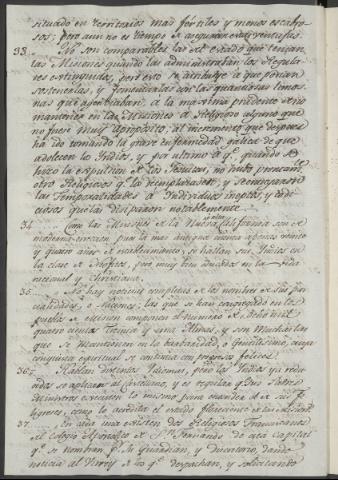 situado en territorios mas fértiles y menos escabro-
sos; pero aun no es tiempo de asegurar estas ventajas.
33. No son comparables las del estado que tenian
las Misiones quando las administraban los Regula-
res extinguidos, pero esto se atribuye a que podian
sostenerlas, y fomentarlas con las quantiosas limos-
nas que agenciaban, a la maxima prudente de no
mantener en las Misiones a Religioso alguno que
no fuese muy aproposito, al incremento que despues
ha ido tomando la grave enfermedad galica de que
adolecen los Indios, y por ultimo a que quando se
hizo la expulsion de los Jesuitas, no hubo prontam.te
otros Religiosos que los reemplazasen, y se encargaron
las temporalidades a Individuos ineptos, y codi-
ciosos que las disiparon notablemente.
34. Como las Misiones de la Nueva California son de
moderna ereccion pues la mas antigua cuenta apenas veinte
y quatro años de establecimiento, se hallan sus Indios en
la clase de Neofitos, pero muy bien educados en la vida
racional y christiana.
35. No hay noticias completas de los nombres de sus par-
cialidades, o Naciones: las que se han congregado en los
Pueblos de Mision componen el numero de ocho mil
quatro cientas treinta y una Almas, y son muchas las
que se mantienen en la barbaridad, o gentilismo, cuya
conquista espiritual se continua con progresos felices.
36. Hablan distintos Idiomas, pero los Indios ya redu-
cidos se aplican al castellano, y es regular que sus Padres
Ministros executen lo mismo para mandar a sus fe-
ligreses, como lo acredita el estado floreciente de las Misiones.
37. En cada una existen dos Religiosos Franciscanos
del Colegio Apostolico de S.n Fernando de esta Capital
q.e se nombran p.r su Guardian, y Discretorio, dando
noticia al Virrey de los q.e despachan, y solicitando